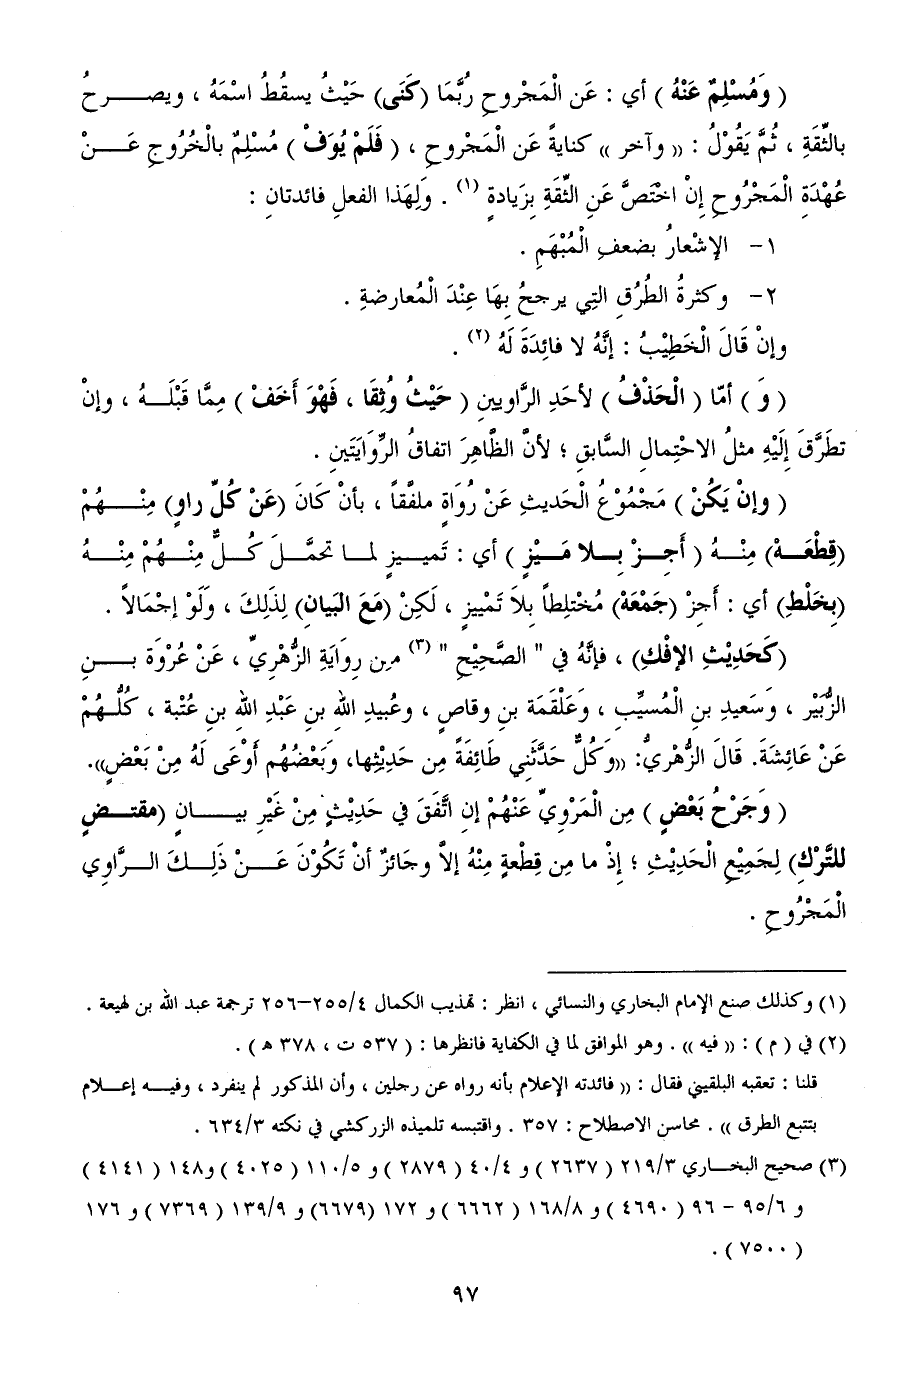 ( وَمُسْلِمٌ عَنْهُ ) أي : عَن الْمَجْروحِ رُبَّمَا (كَنَى) حَيْثُ يسقُطُ اسْمَهُ ، ويصرحُ
بالثِّقَةِ ، ثُمَّ يَقُوْلُ : (( وآخر )) كنايةً عَن الْمَجْروحِ ، ( فَلَمْ يُوَفْ ) مُسْلِمٌ بالْخُرُوجِ عَنْ
عُهْدَةِ الْمَجْرُوحِ إنْ اخْتَصَّ عَنِ الثِّقَةِ بزَيادةٍ (١) . وَلِهَذا الفعلِ فائدتان :
١- الإشْعارُ بضعفِ الْمُبْهَمِ .
٢- وكثرةُ الطُرُقِ التِي يرجحُ بِهَا عِنْدَ الْمُعارضةِ .
وإنْ قَالَ الْخَطِيْبُ : إنَّهُ لا فائِدَةَ لَهُ (٢) .
( وَ ) أمّا ( الْحَذْفُ ) لأحَدِ الرَّاويينِ ( حَيْثُ وُثِقَا ، فَهْوَ أَخَفْ ) مِمَّا قَبْلَهُ ، وإنْ
تطَرَّقَ إلَيْهِ مثلُ الاحْتِمالِ السَّابقِ ؛ لأنَّ الظَّاهِرَ اتفاقُ الرِّوَايَتَينِ .
( وإنْ يَكُنْ ) مَجْمُوْعُ الْحَديثِ عَنْ رُوَاةٍ ملفَّقاً ، بأنْ كَانَ (عَنْ كُلِّ راوٍ) مِنْهُمْ
(قِطْعَهْ) مِنْهُ ( أَجِزْ بِلا مَيْزٍ ) أي : تَمييزٍ لما تحمَّلَ كُلٌّ مِنْهُمْ مِنْهُ
(بِخَلْطٍ) أي : أجِزْ (جَمْعَهْ) مُخْتلِطاً بلاَ تَمْييزٍ ، لَكِنْ (مَعَ البَيان) لِذَلِكَ ، وَلَوْ إجْمَالاً .
(كَحَدِيْثِ الإفْكِ) ، فإنَّهُ في " الصَّحِيْحِ " (٣) من رِوايَةِ الزُّهْرِيِّ ، عَنْ عُرْوَةَ بنِ
الزُّبَيْر ، وَسَعيدِ بنِ الْمُسيِّب ، وَعَلْقَمَة بنِ وقاصٍ ، وعُبيدِ اللهِ بنِ عَبْدِ اللهِ بنِ عُتْبة ، كُلُّهُمْ
عَنْ عَائِشَةَ. قَالَ الزُّهْريُّ: ((وَكُلٌّ حَدَّثَنِي طَائِفَةً مِن حَدِيْثِها، وبَعْضُهُم أَوْعَى لَهُ مِنْ بَعْضٍ)).
( وَجَرْحُ بَعْضٍ ) مِن الْمَرْويِّ عَنْهُمْ إن اتَّفَقَ في حَدِيْثٍ مِنْ غَيْرِ بيانٍ (مقتضٍ
للتَّرْكِ) لِجَمِيْعِ الْحَدِيْثِ ؛ إذْ ما مِن قِطْعةٍ مِنْهُ إلاّ وجَائزٌ أنْ تَكُوْنَ عَنْ ذَلِكَ الرَّاوي
الْمَجْرُوحِ .
(١) وكذلك صنع الإمام البخاري والنسائي ، انظر : تهذيب الكمال ٢٥٥/٤-٢٥٦ ترجمة عبد الله بن لهيعة .
(٢) في ( م ) : (( فيه )) . وهو الموافق لما في الكفاية فانظرها : ( ٥٣٧ ت ، ٣٧٨ ه ) .
قلنا : تعقبه البلقيني فقال : (( فائدته الإعلام بأنه رواه عن رجلين ، وأن المذكور لم ينفرد ، وفيه إعلام
بتتبع الطرق )) . محاسن الاصطلاح : ٣٥٧ . واقتبسه تلميذه الزركشي في نكته ٦٣٤/٣ .
(٣) صحيح البخاري ٢١٩/٣ ( ٢٦٣٧ ) و ٤٠/٤ ( ٢٨٧٩ ) و ١١٠/٥ ( ٤٠٢٥ ) و١٤٨ ( ٤١٤١ )
و ٩٥/٦ – ٩٦ ( ٤٦٩٠ ) و ١٦٨/٨ ( ٦٦٦٢ ) و ١٧٢ (٦٦٧٩) و ١٣٩/٩ ( ٧٣٦٩ ) و ١٧٦
( ٧٥٠٠ ) .
٩٧